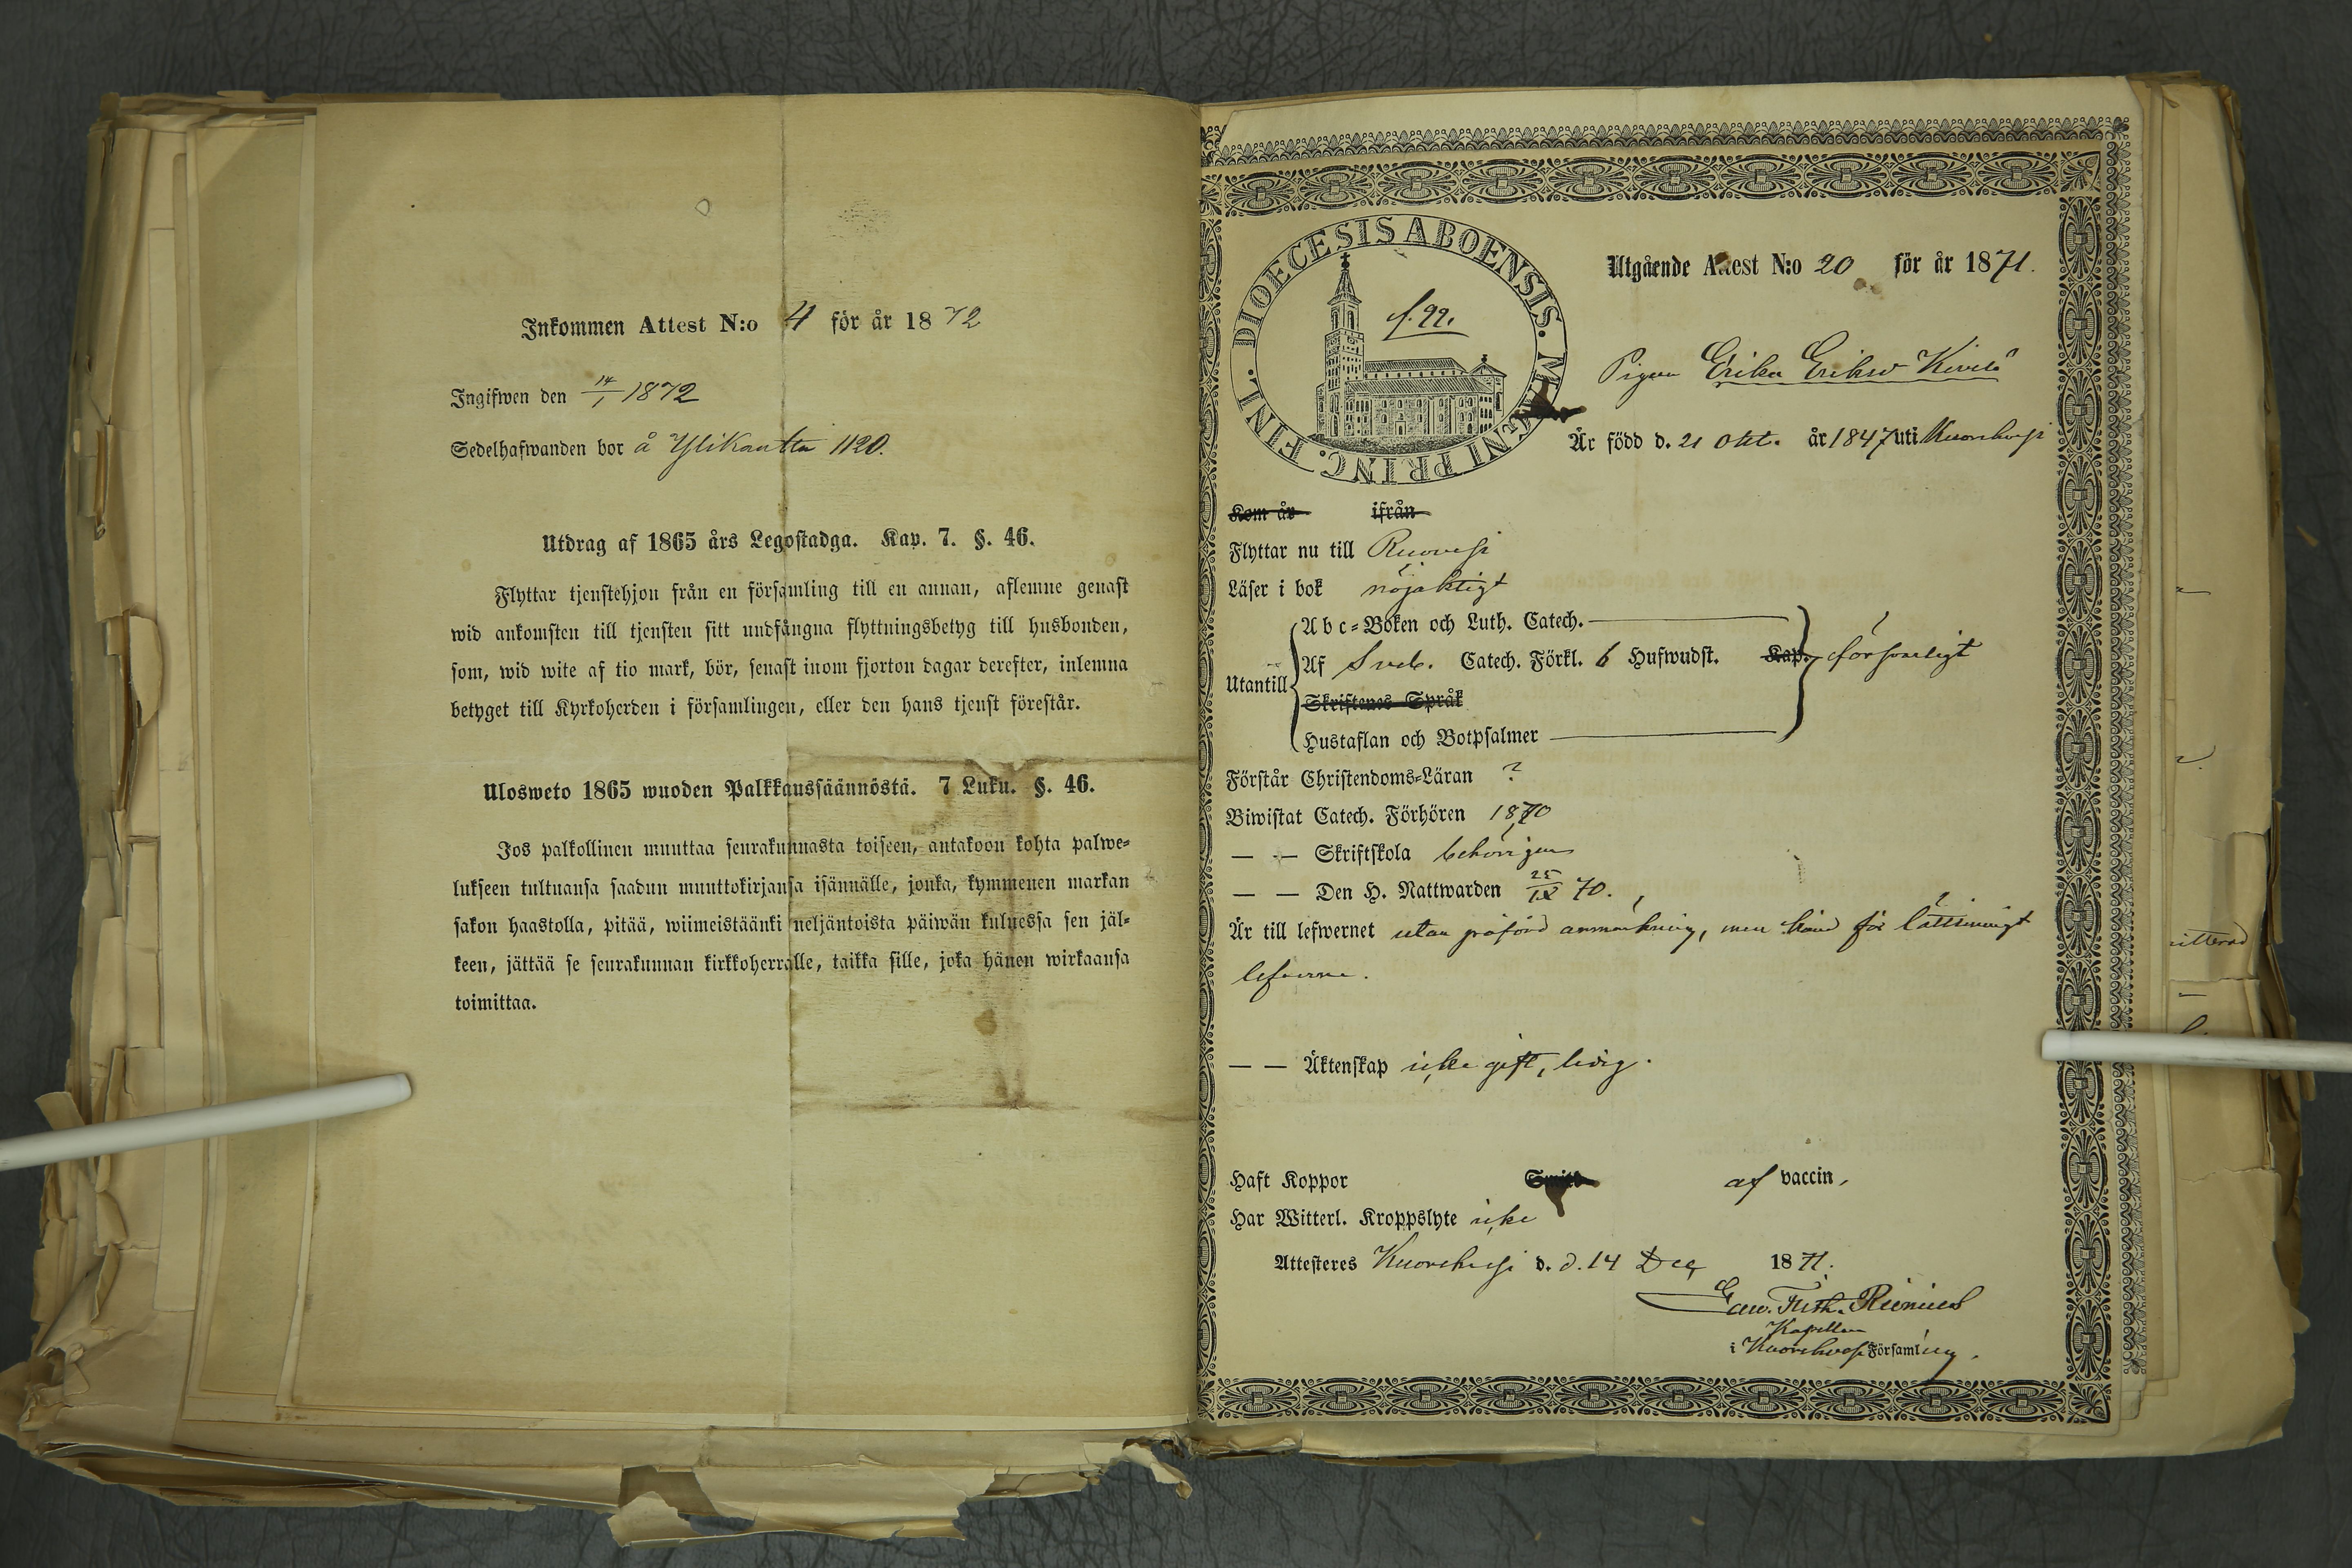 Inkommen Attest N:o 4 för år 1872
Ingifwen den 14/1 1872
Sedelhafwanden bor å Ylikautta 1120.
Utdrag af 1865 års Legostadga. Kap. 7. §. 46.
Flyttar tjenstehjon från en församling till en annan, aflemne genast
wid ankomsten till tjensten sitt undfångna flyttningsbetyg till husbonden,
som, wid wite af tio mark, bör, senast inom fjorton dagar derefter, inlemna
betyget till Kyrkoherden i församlingen, eller den hans tjenst förestår.
Ulosweto 1865 wuoden Palkkaussäännöstä. 7 Luku. §. 46.
Jos palkollinen muuttaa seurakunnasta toiseen, antakoon kohta palwe-
lukseen tultuansa saadun muuttokirjansa isännälle, jonka, kymmenen markan
sakon haastolla, pitää, wiimeistäänki neljäntoista päiwän kuluessa sen jäl-
keen, jättää se seurakunnan kirkkoherralle, taikka sille, joka hänen wirkaansa
toimittaa.
DIOECESIS ABOENSIS. MAGNI PRINC. FINL.
f. 99.
Utgående Attest N:o 20 för år 1871.
Pigan Erika Eriksd Kivelä
Är född d. 21 Okt. år 1847 uti Kuorehvesi
Kom år ifrån
Flyttar nu till Ruovesi
Läser i bok nöjaktigt
Abc-Boken och Luth. Catech.
Utantill Af Sveb. Catech. Förkl. 6 Hufwudst. Kap. försvarligt
Skriftenes Språk
Hustaflan och Botpsalmer
Förstår Christendoms-Läran ?
Biwistat Catech. Förhören 1870
— — Skriftskola behörigen
— — Den H. Nattwarden 25/IX 70.
Är till lefwernet utan påförd anmärkning, men känd för lättsinnigt
lefverne.
— — Äktenskap icke gift, ledig.
Haft Koppor Smitt af vaccin,
Har Witterl. Kroppslyte icke
Attesteres Kuorehvesi d. d. 14 Dec 1871.
Kapellan
i Kuorehvesi Församling.